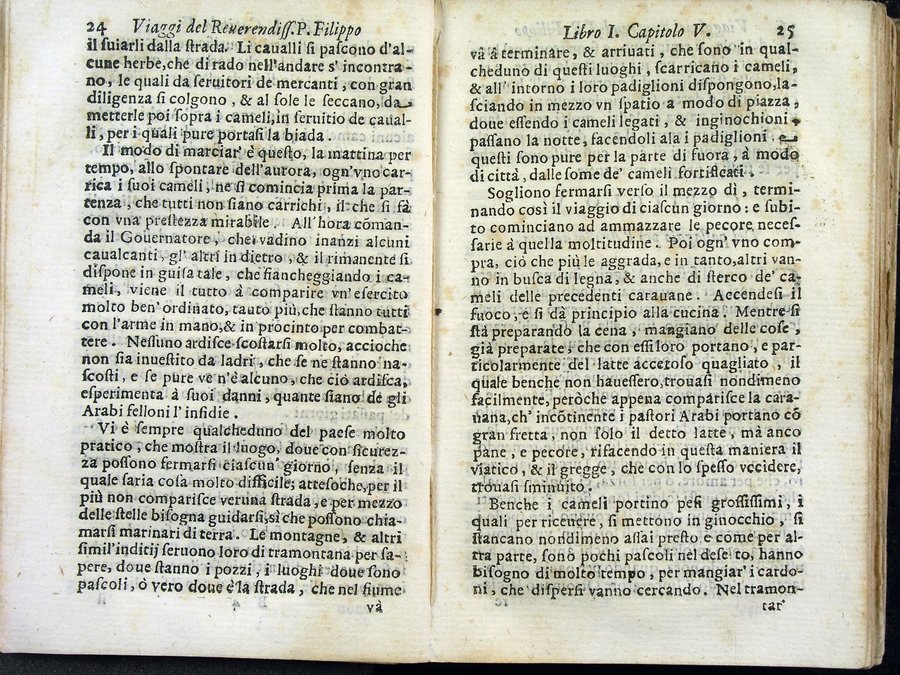 24 Viaggi del Reuerendiſſ. P. Filippo
il ſuiarli dalla ſtrada. Li caualli ſi paſcono d'al-
cune herbe, che di rado nell'andare s' incontra-
no, le quali da ſeruitori de mercanti, con gran
diligenza ſi colgono, & al ſole le ſeccano, da
metterle poi ſopra i cameli, in ſeruitio de caual-
li, per i quali pure portaſi la biada.
Il modo di marciar' è queſto, la mattina per
tempo, allo ſpontare dell'aurora, ogn'vno car-
rica i ſuoi cameli, ne ſi comincia prima la par-
tenza, che tutti non ſiano carrichi, il che ſi fà
con vna preſtezza mirabile. All'hora cõman-
da il Gouernatore, che vadino inanzi alcuni
caualcanti, gl' altri in dietro, & il rimanente ſi
diſpone in guiſa tale, che fiancheggiando i ca-
meli, viene il tutto à comparire vn'eſercito
molto ben' ordinato, tauto più, che ſtanno tutti
con l'arme in mano, & in procinto per combat-
tere. Neſſuno ardiſce ſcoſtarſi molto, accioche
non ſia inueſtito da ladri, che ſe ne ſtanno na-
ſcoſti, e ſe pure ve n'è alcuno, che ciò ardiſca,
eſperimenta à ſuoi danni, quante ſiano de gli
Arabi felloni l' inſidie.
Vi è ſempre qualcheduno del paeſe molto
pratico, che moſtra il luogo, doue con ſicurez-
za poſſono fermarſi ciaſcun' giorno, ſenza il
quale ſaria coſa molto difficile; atteſoche, per il
più non compariſce veruna ſtrada, e per mezzo
delle ſtelle biſogna guidarſi, sì che poſſono chia-
marſi marinari di terra. Le montagne, & altri
ſimil'inditij ſeruono loro di tramontana per ſa-
pere, doue ſtanno i pozzi, i luoghi doue ſono
paſcoli, ò vero doue è la ſtrada, che nel fiume
và
Libro I. Capitolo V. 25
và à terminare, & arriuati, che ſono in qual-
cheduno di queſti luoghi, ſcarricano i cameli,
& all' intorno i loro padiglioni diſpongono, la-
ſciando in mezzo vn ſpatio a modo di piazza,
doue eſſendo i cameli legati, & inginochioni
paſſano la notte, facendoli ala i padiglioni, e
queſti ſono pure per la parte di fuora, à modo
di città, dalle ſome de' cameli fortificati.
Sogliono fermarſi verſo il mezzo dì, termi-
nando così il viaggio di ciaſcun giorno: e ſubi-
to cominciano ad ammazzare le pecore neceſ-
ſarie à quella moltitudine. Poi ogn' vno com-
pra, ciò che più le aggrada, e in tanto, altri van-
no in buſca di legna, & anche di ſterco de' ca-
meli delle precedenti carauane. Accendeſi il
fuoco, e ſi dà principio alla cucina. Mentre ſi
ſtà preparando la cena, mangiano delle coſe,
già preparate, che con eſſi loro portano, e par-
ticolarmente del latte accetoſo quagliato, il
quale benche non haueſſero, trouaſi nondimeno
facilmente, peròche appena compariſce la cara-
uana, ch' incõtinente i paſtori Arabi portano cõ
gran fretta, non ſolo il detto latte, mà anco
pane, e pecore, rifacendo in queſta maniera il
viatico, & il gregge, che con lo ſpeſſo vccidere,
trouaſi ſminuito.
Benche i cameli portino peſi groſſiſſimi, i
quali per riceuere, ſi mettono in ginocchio, ſi
ſtancano nondimeno aſſai preſto e come per al-
tra parte, ſono pochi paſcoli nel deſe to, hanno
biſogno di molto tempo, per mangiar' i cardo-
ni, che diſperſi vanno cercando. Nel tramon-
tar'